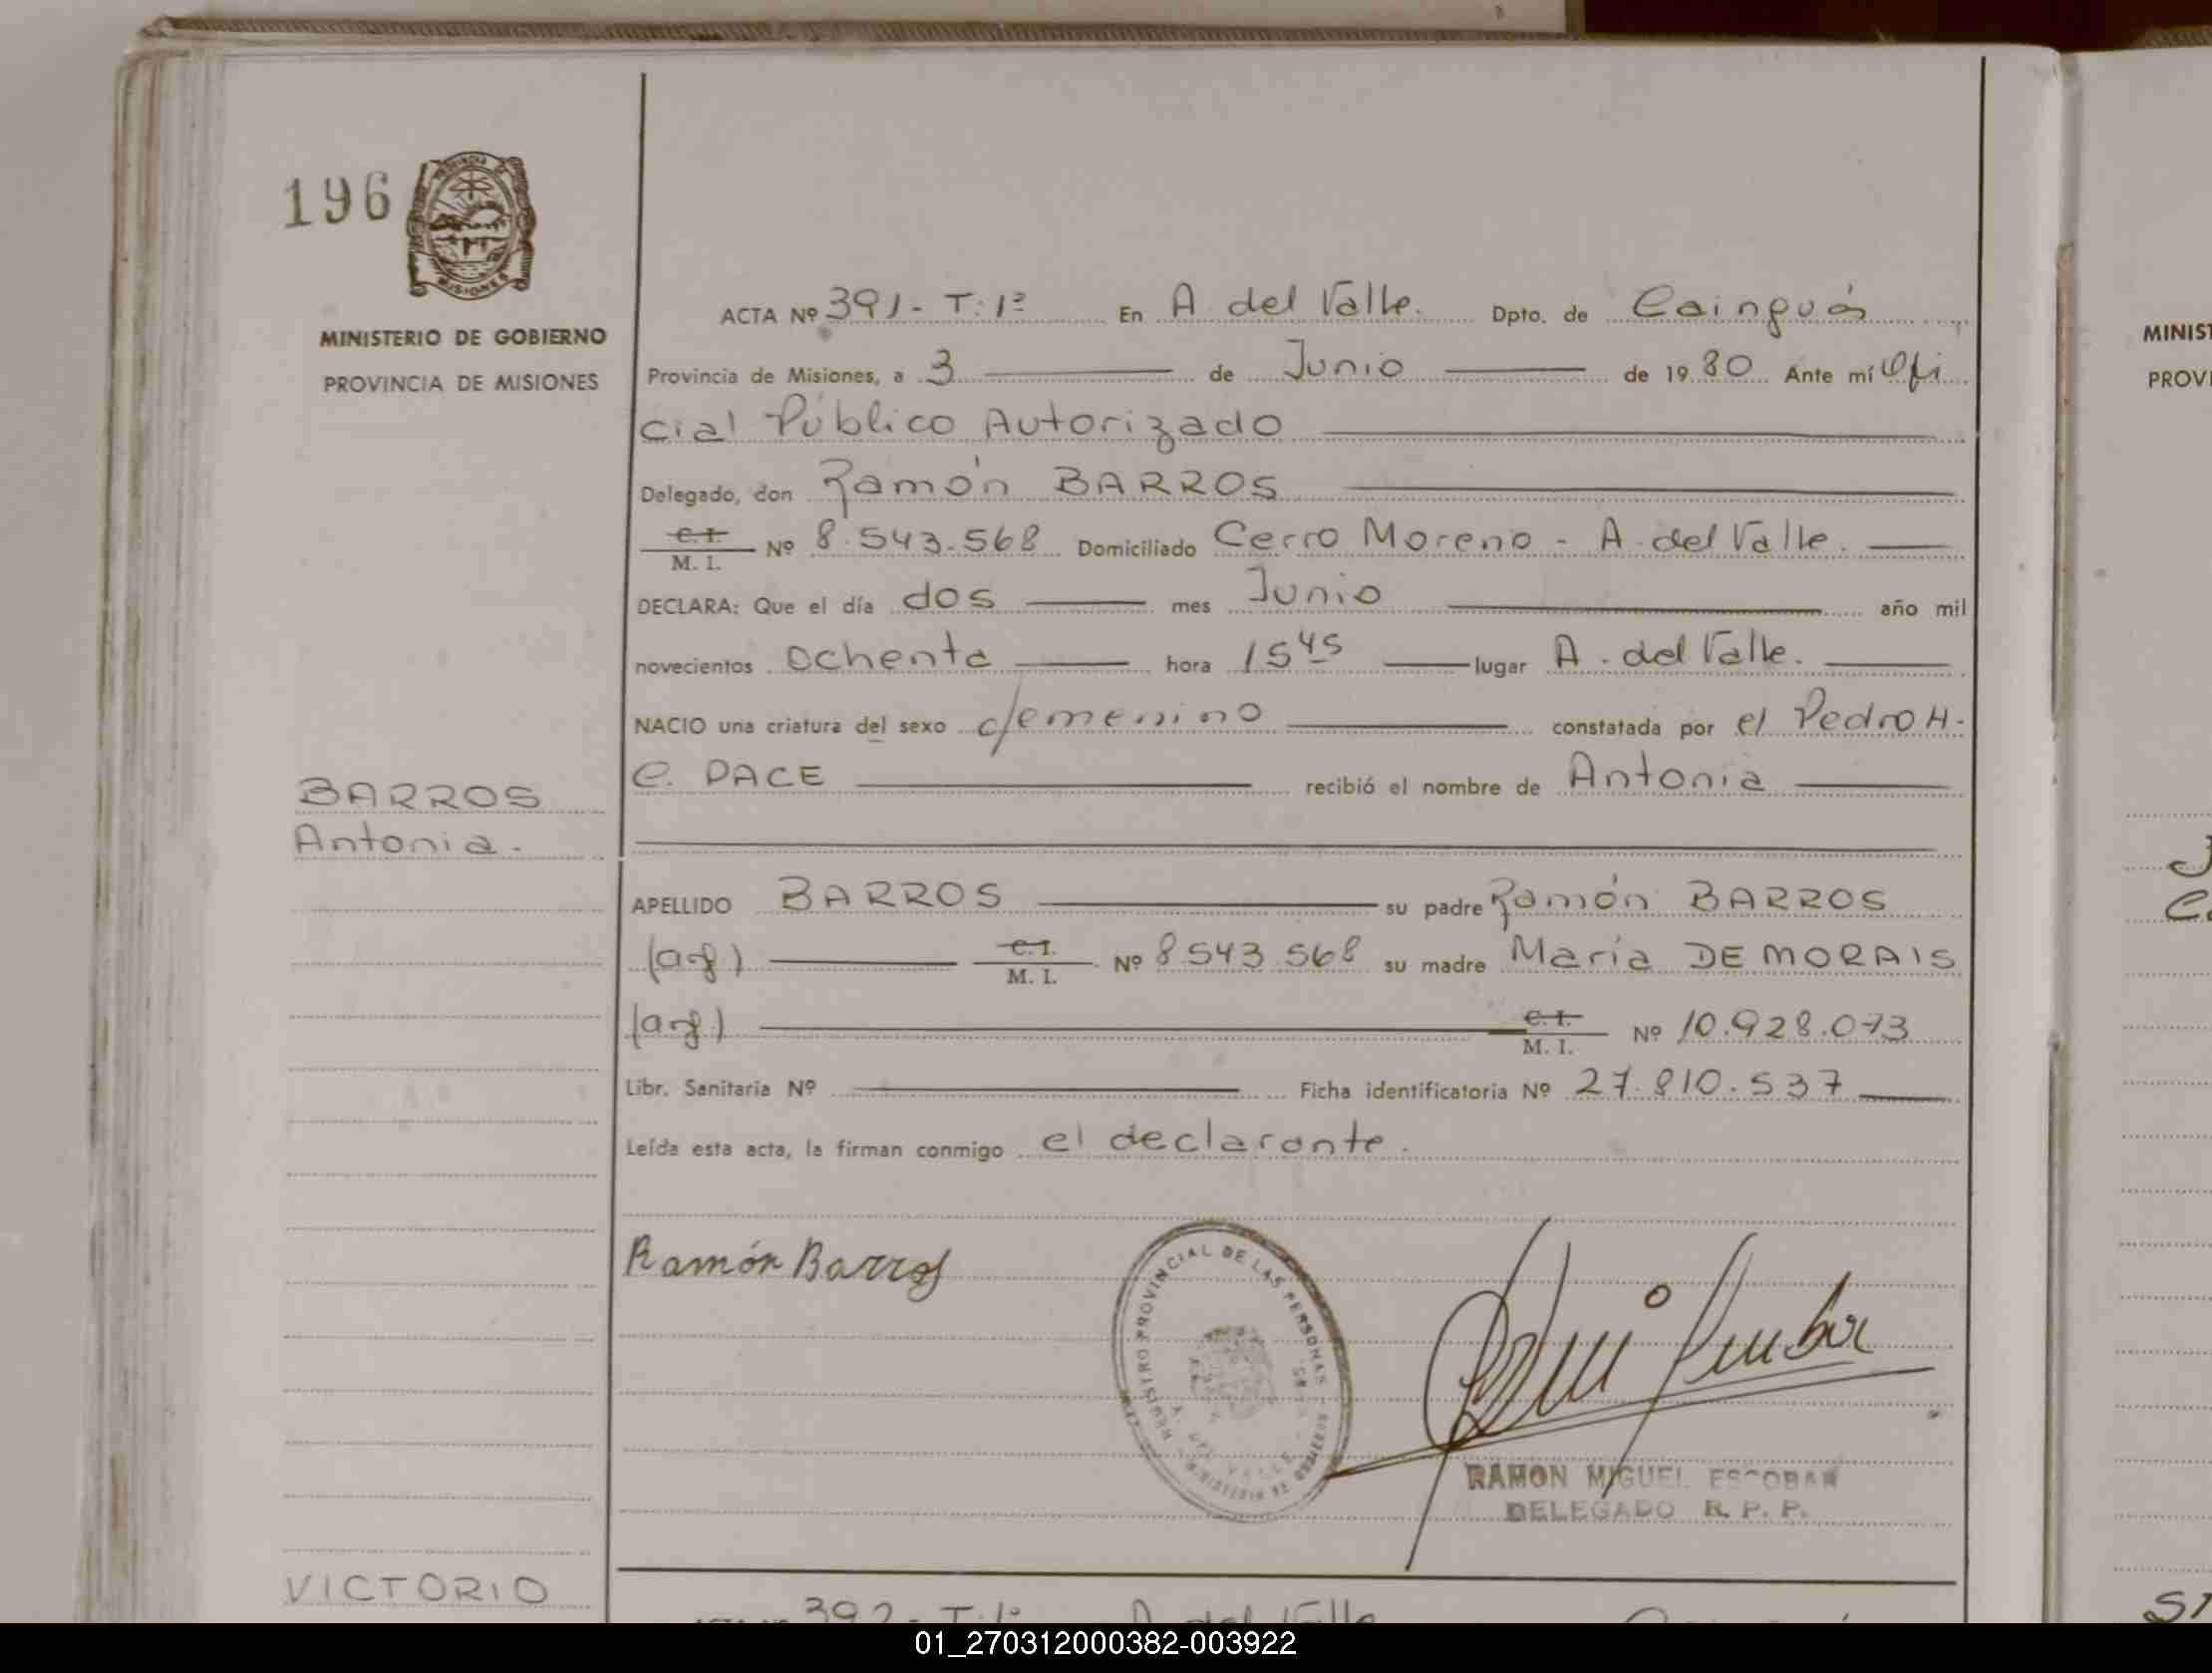 196
MISIONES
MINISTERIO DE GOBIERNO
PROVINCIA DE MISIONES
ACTA Nº 391 - T: 1º En A del Valle. Dpto. de Cainguás
Provincia de Misiones, a 3 de Junio de 1980 Ante mí Ofi
cial Público Autorizado
Delegado, don Ramón BARROS
C. I.
M. I. Nº 8.543.568 Domiciliado Cerro Moreno - A. del Valle.
DECLARA: Que el día dos mes Junio año mil
novecientos ochenta hora 15 45 lugar A. del Valle.
NACIO una criatura del sexo femenino constatada por el Pedro H.
C. PACE recibió el nombre de Antonia
BARROS
Antonia.
APELLIDO BARROS su padre Ramón BARROS
(arg) C. I.
M. I. Nº 8.543.568 su madre María DE MORAIS
(arg.) C. I.
M. I. Nº 10.928.073
Libr. Sanitaria Nº Ficha identificatoria Nº 27.810.537
Leída esta acta, la firman conmigo el declarante.
Ramón Barros
REGISTRO PROVINCIAL DE LAS PERSONAS
MINISTERIO DE GOBIERNO
A. DEL VALLE
RAMON MIGUEL ESCOBAR
DELEGADO R. P. P.
VICTORIO
392 - T: 1º A del Valle
MINIST
PROVI
01_270312000382-003922